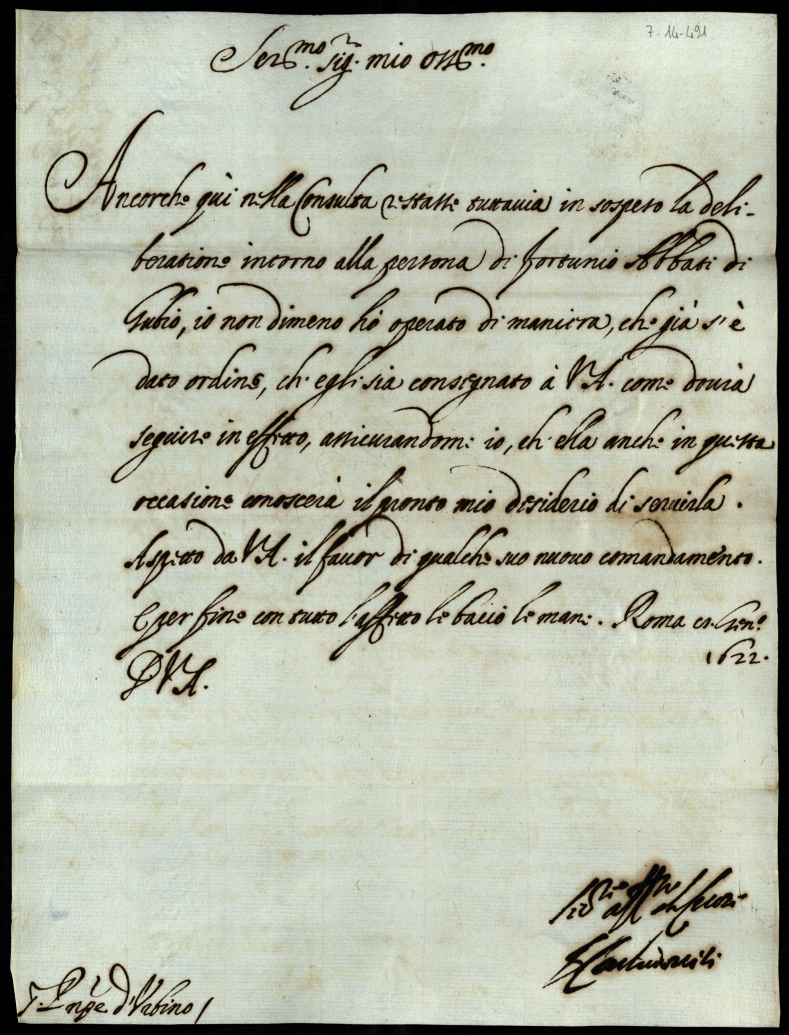 7-14-491
Ser.mo sig.r mio oss.mo
Ancorche qui nella Consulta restasse tuttavia in sospeso la deli-
beratione intorno alla persona di fortunio Abbati di
Gubio, io non dimeno hò operato di maniera, che già s'è
dato ordine, ch'egli sia consegnato à V.A. come dovrà
seguire in effetto, assicurandome io, ch'ella anche in questa
occasione conoscerà il pronto mio desiderio di servirla.
Aspetto da V.A. il favor di qualche suo nuovo comandamento.
E per fine con tutto l'affetto le bacio le mane. Roma Gen.o
1622.
D V.A.
aff.mo
S. Prn.pe d'Urbino